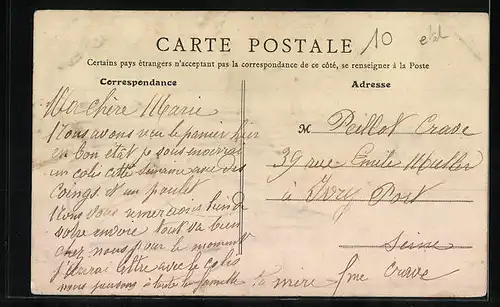 CARTE POSTALE
10
Certains pays étrangers n'acceptent pas la correspondance de ce côté, se renseigner à la Poste
Correspondance
Ma chère Marie
Nous avons vu le panier hier
en bon état je
un colis cette semaine avec des
coings et un poulet
Nous vous remercions bien de
votre encore tout va bien
chez nous pour le moment
lettre avec le colis
nous à toute la famille ta mère fme Crave
Adresse
M Peillot Crave
39 rue Emile Muller
à Ivry Port
Seine